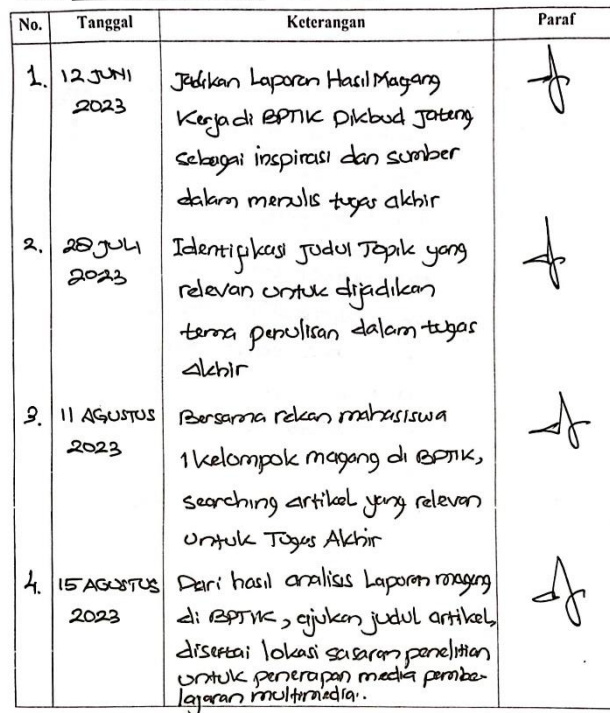 No. Tanggal Keterangan Paraf
1. 12 JUNI Jadikan Laporan Hasil Magang
2023 Kerja di BPTIK Dikbud Jateng
sebagai inspirasi dan sumber
dalam menulis tugas akhir
2. 28 JULI Identifikasi Judul Topik yang
2023 relevan untuk dijadikan
tema penulisan dalam tugas
Akhir
3. 11 AGUSTUS Bersama rekan mahasiswa
2023 1 kelompok magang di BPTIK,
searching artikel yang relevan
untuk Tugas Akhir
4. 15 AGUSTUS Dari hasil analisis Laporan magang
2023 di BPTIK, ajukan judul artikel,
disertai lokasi sasaran penelitian
untuk penerapan media pembe-
lajaran multimedia..